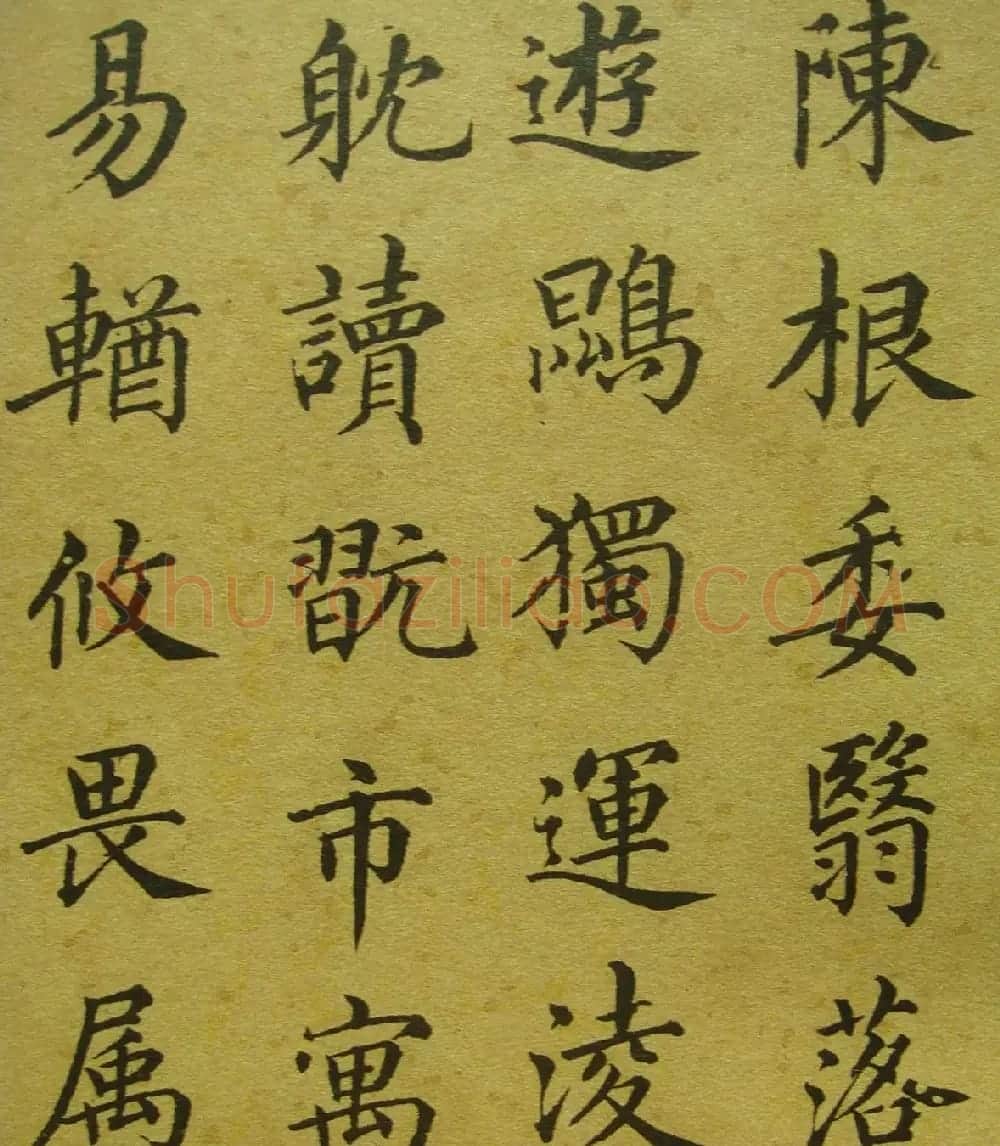 陳根委翳落
遊鵾獨運淩
躭讀翫市寓
易輶攸畏属
Shufaziliao.COM